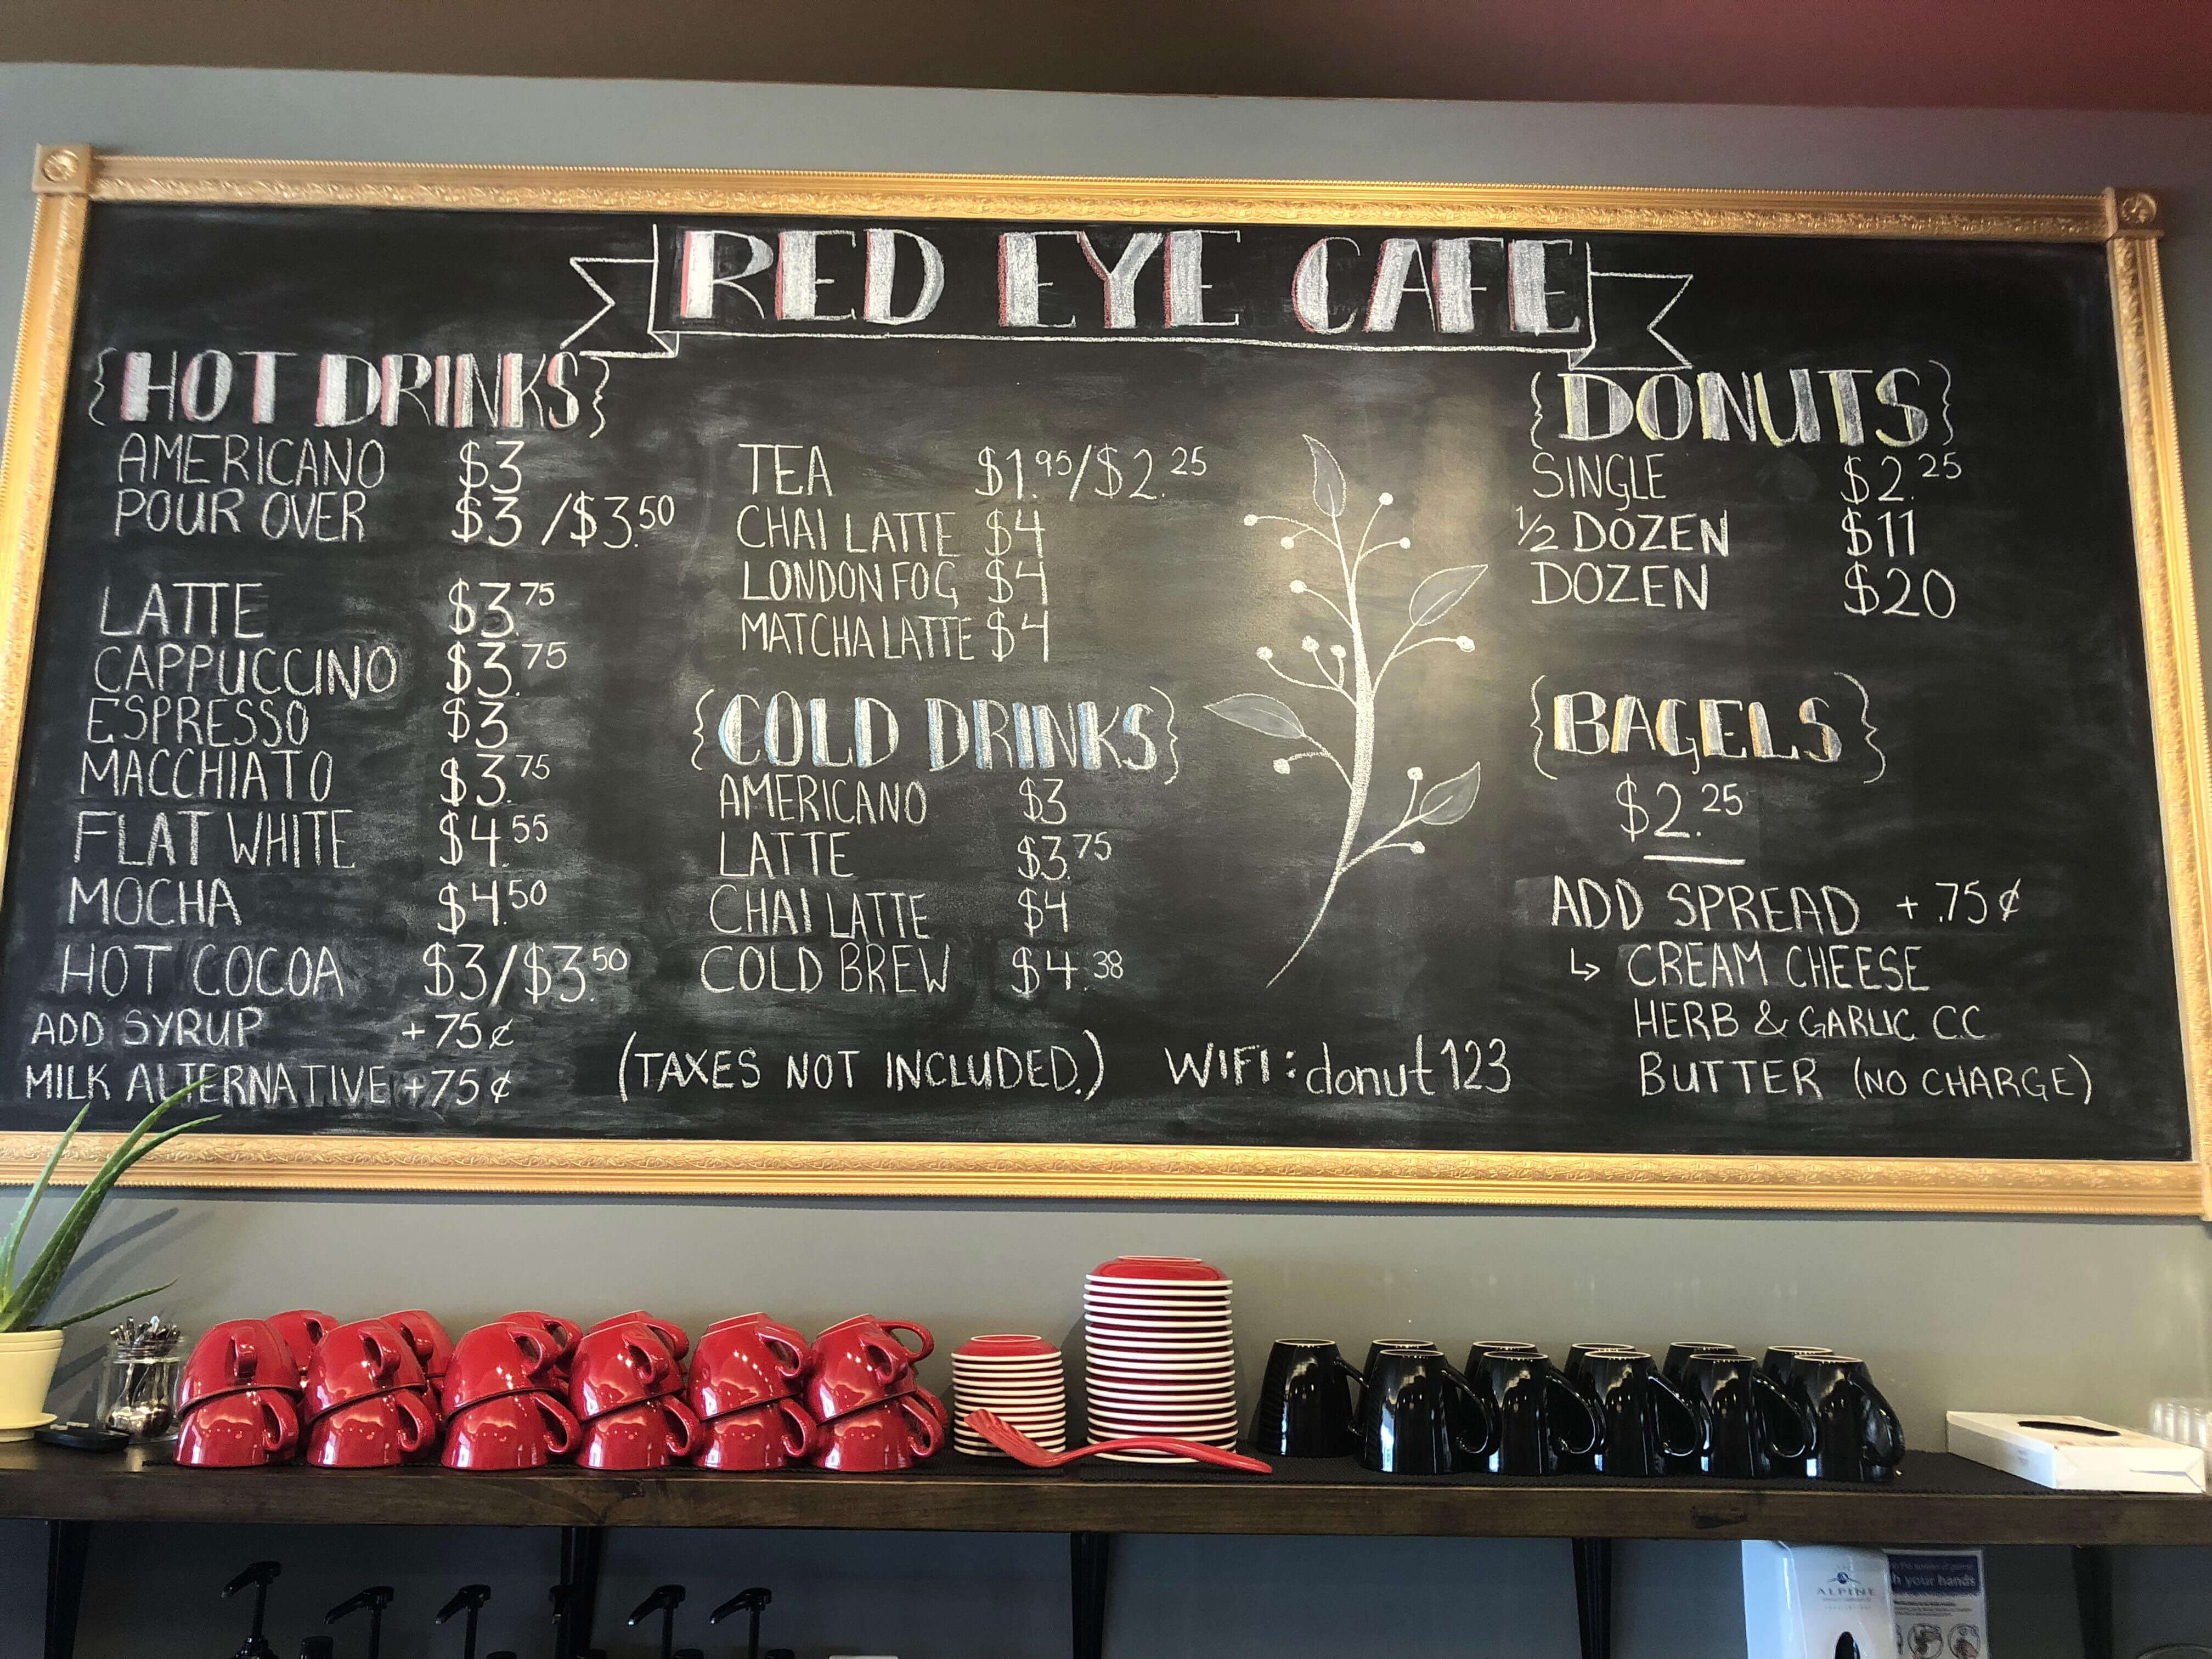 RED EYE CAFE
{HOT DRINKS}
AMERICANO $3
POUR OVER $3/$3.50
LATTE $3.75
CAPPUCCINO $3.75
ESPRESSO $3
MACCHIATO $3.75
FLAT WHITE $4.55
MOCHA $4.50
HOT COCOA $3/$3.50
ADD SYRUP +75¢
MILK ALTERNATIVE +75¢
TEA $1.95/$2.25
CHAI LATTE $4
LONDON FOG $4
MATCHA LATTE $4
{COLD DRINKS}
AMERICANO $3
LATTE $3.75
CHAI LATTE $4
COLD BREW $4.38
(TAXES NOT INCLUDED.)
WIFI: donut123
{DONUTS}
SINGLE $2.25
1/2 DOZEN $11
DOZEN $20
{BAGELS}
$2.25
ADD SPREAD +.75¢
↳ CREAM CHEESE
HERB & GARLIC C.C
BUTTER (NO CHARGE)
ALPINE
your hands